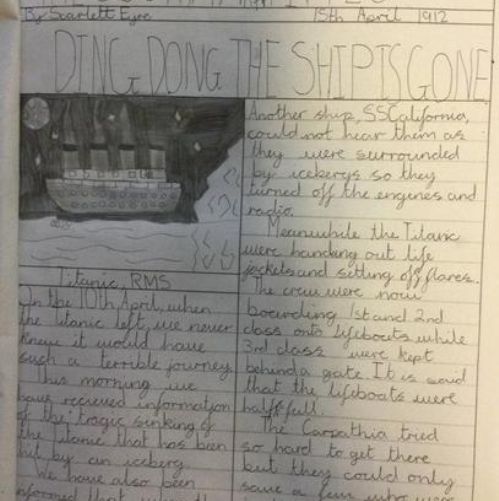 By Scarlett Eyre
15th April 1912
DING DONG THE SHIP IS GONE
Titanic, RMS
On the 10th April, when
the titanic left, we never
knew it would have
such a terrible journey.
This morning we
have recieved information
of the tragic sinking of
the Titanic that has been
hit by an iceberg.
We have also been
informed that
Another ship, SSCalifornia,
could not hear them as
they were surrounded
by icebergs so they
turned off the engines and
radio.
Meanwhile the Titanic
were handing out life
jackets and setting off flares.
The crew were now
boarding 1st and 2nd
class onto lifeboats while
3rd class were kept
behind a gate. It is said
that the lifeboats were
half full.
The Carpathia tried
so hard to get there
but they could only
save a few who were